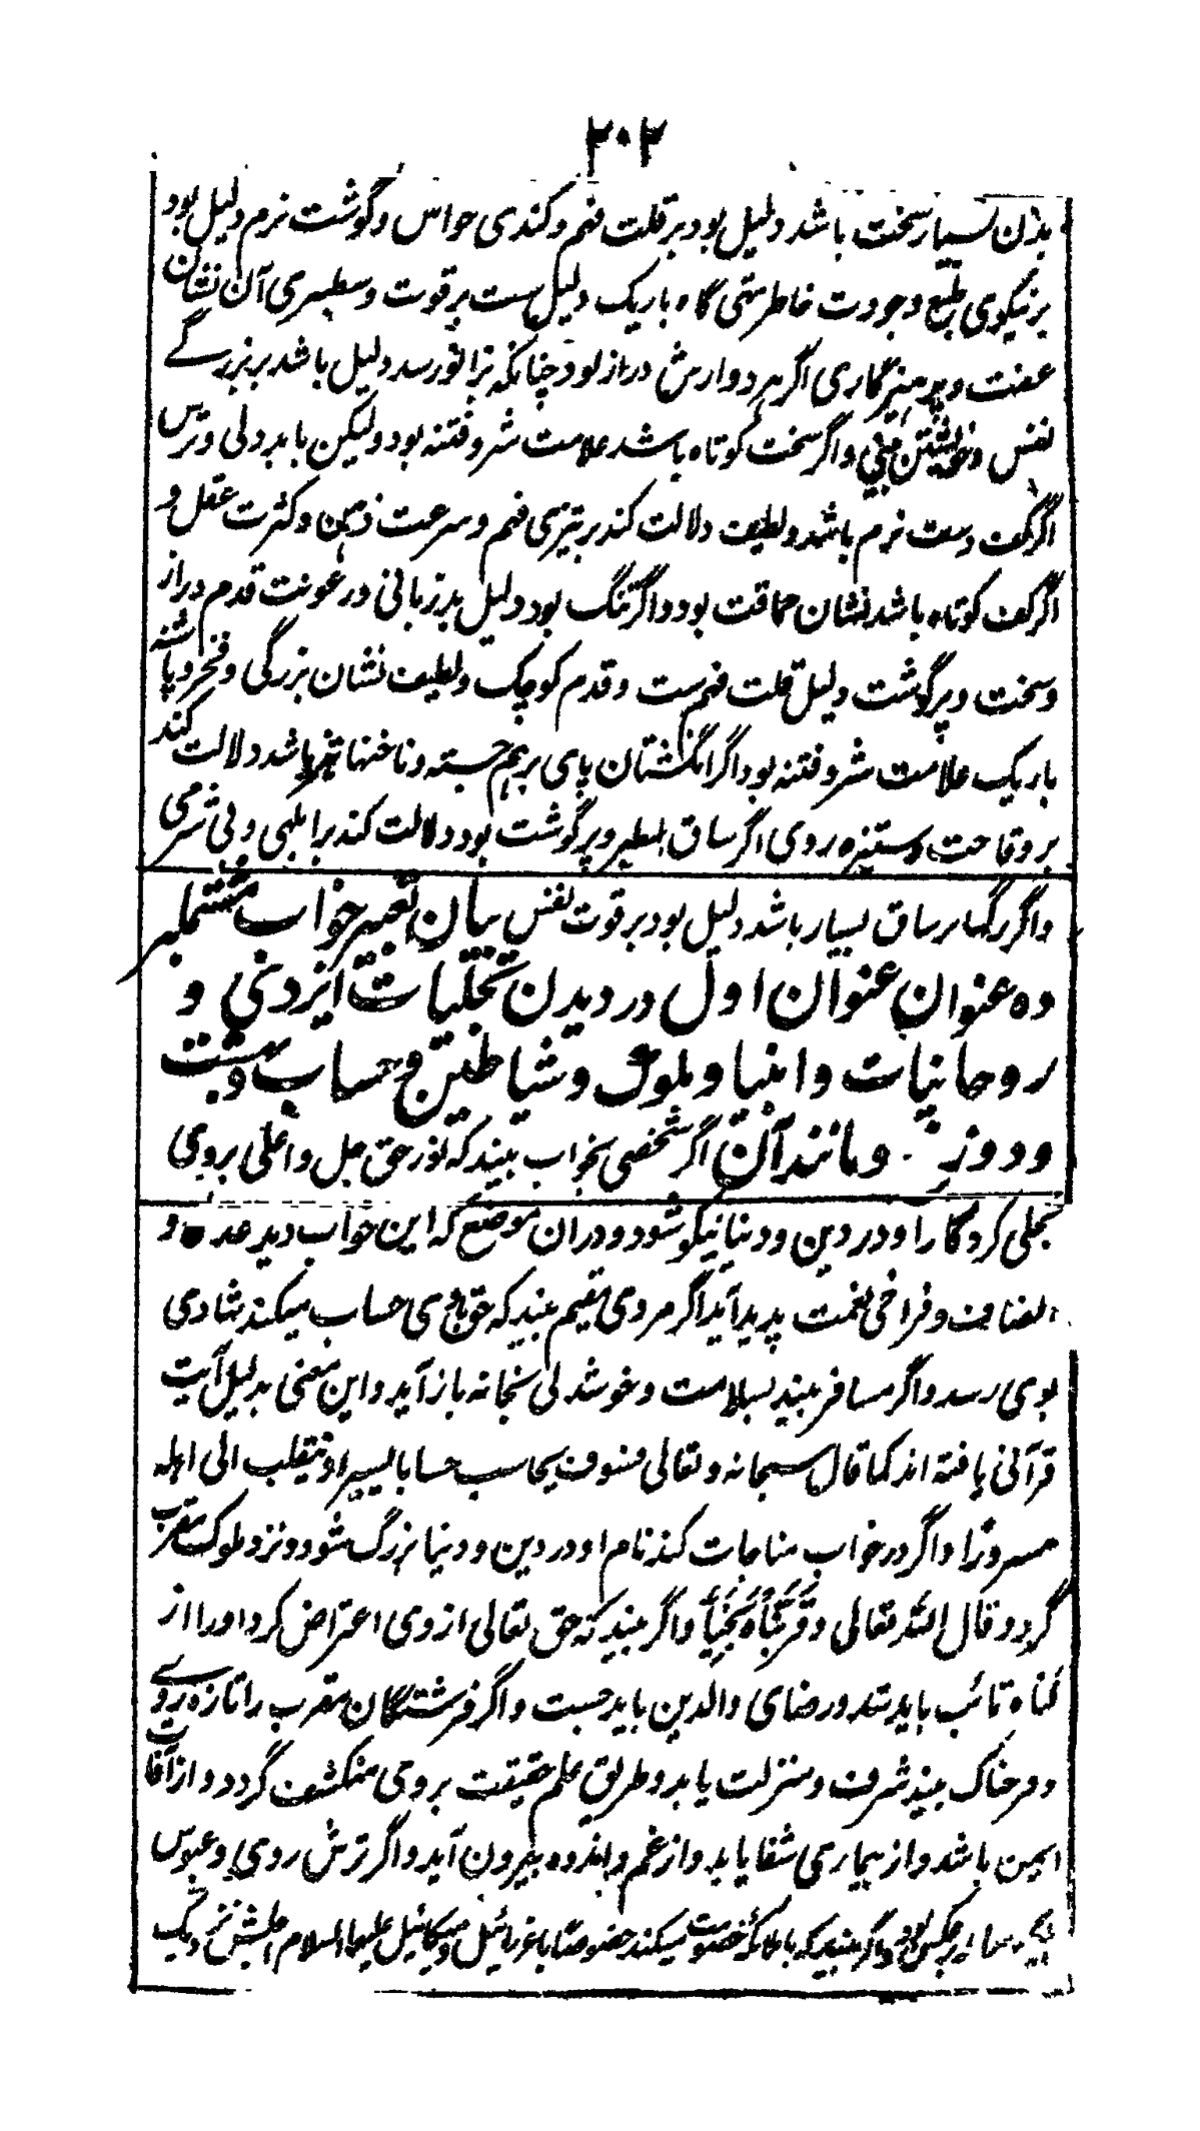 ۲۰۲
بدن بسیار سخت باشد دلیل بود بر قلت فهم و کندی حواس و گوشت نرم دلیل بود
بر نیکوی طبع و جودت خاطر تهی گاه باریک دلیل ست بر قوت و سطبری آن نشان
عفت و پرهیزگاری اگر هر دو ارش دراز بود چنانکه بزانو رسد دلیل باشد بر بزرگے
نفس و خویشتن بینی و اگر سخت کوتاه باشد علامت شر و فتنه بود و لیکن با بددلی و ترس
اگر کف دست نرم باشد و لطیف دلالت کند بر تیزی فهم و سرعت ذهن و کثرت عقل و
اگر کف کوتاه باشد نشان حماقت بود و اگر تنگ بود دلیل بدزبانی و رعونت قدم دراز
و سخت و پرگوشت دلیل قلت فهم ست و قدم کوچک و لطیف نشان بزرگی و فخر و پاشنه
باریک علامت شر و فتنه بود اگر انگشتان پای برهم جسته و ناخنها تیز باشد دلالت کند
بر وقاحت و ستیزه روی اگر ساق سطبر و پرگوشت بود دلالت کند بر ابلهی و بی شرمی
و اگر رگها بر ساق بسیار باشد دلیل بود بر قوت نفس بیان تعبیر خواب مشتمل بر
ده عنوان عنوان اول در دیدن تجلیات ایزدی و
روحانیات و انبیا و ملوک و شیاطین و حساب و بهشت
و دوزخ و مانند آن اگر شخصی بخواب بیند که نور حق جل و اعلی بروی
تجلی کرد کار او در دین و دنیا نیکو شود و دران موضع که این خواب دید عدل و
انصاف و فراخی نعمت پدید آید اگر مردی مقیم بیند که حق با وی حساب میکند شادی
بوی رسد و اگر مسافر بیند بسلامت و خوشدلی بخانه باز آید و این معنی بدلیل آیت
قرآنی یافته اند کما قال سبحانه و تعالی فسوف یحاسب حسابا یسیرا و ینقلب الی اهله
مسرورا و اگر در خواب مناجات کند نام او در دین و دنیا بزرگ شود و نزد ملوک مقرب
گردد قال الله تعالی وَقَرَّبْنَاهُ نَجِيًّا و اگر بیند که حق تعالی از وی اعتراض کرد او را از
گناه تائب باید شد و رضای والدین باید جست و اگر فرشتگان مقرب را تازه روے
و فرحناک بیند شرف و منزلت یابد و طریق علم حقیقت بروی منکشف گردد و از آفات
ایمن باشد و از بیماری شفا یابد و از غم و اندوه بیرون آید و اگر ترش روی و عبوس
بیند بعکس بود و اگر بیند که با ملائکه خصومت میکند خصوصًا با عزرائیل و میکائیل علیهما السلام اجلش نزدیک